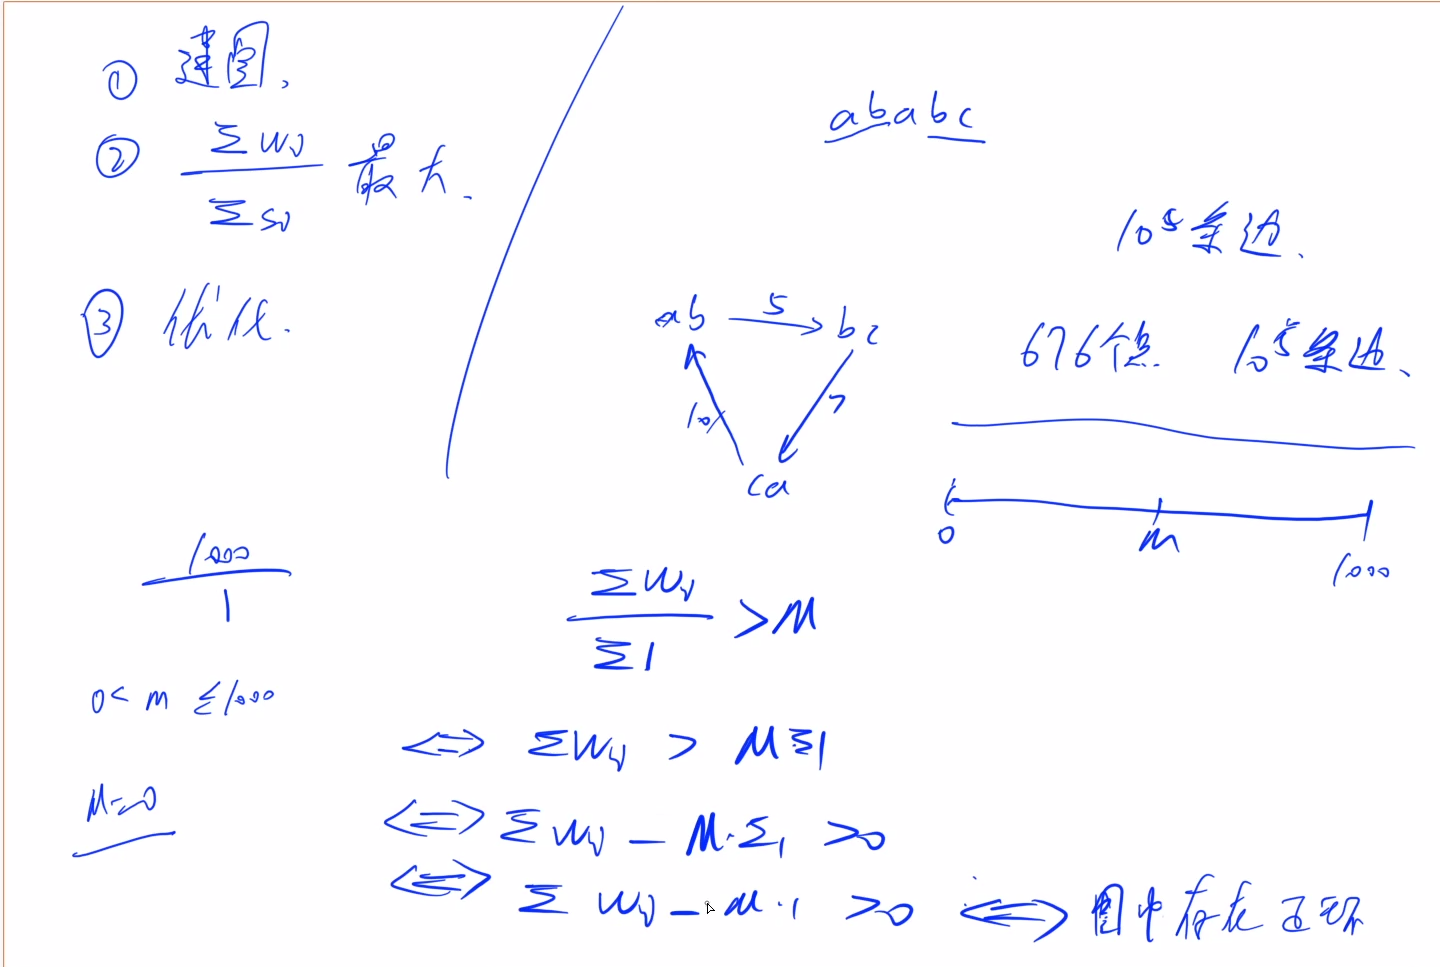 ① 建图.
② ΣWi
ΣSi
最大.
③ 优化.
ababc
10⁵条边.
ab 5 bc
10
7
ca
676个点. 10⁵条边.
0 M 1000
1000
1
0< m ≤1000
M=0
ΣWi
Σ1
>M
⇔ ΣWi > MΣ1
⇔ ΣWi - M·Σ1 >0
⇔ ΣWi - M·1 >0 ⇔ 图中存在正环